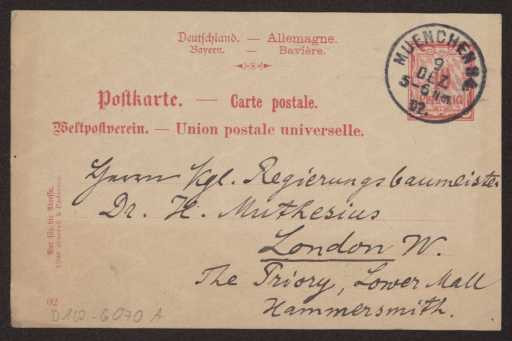 Deutschland. — Allemagne.
Bayern. — Bavière.
MUENCHEN
9
DEZ
5-6 Nm
02.
Postkarte. — Carte postale.
Weltpostverein. — Union postale universelle.
Herrn Kgl. Regierungsbaumeister
Dr. H. Muthesius
London W.
The Priory, Lower Mall
Hammersmith.
Nur für die Adresse.
02
D102-6070 A